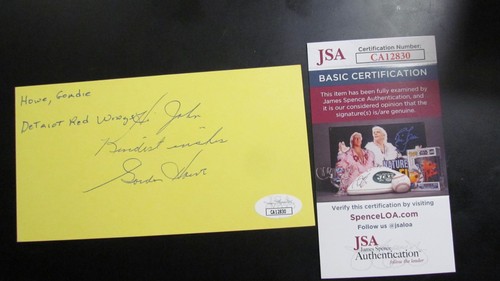 Howe, Gordie
Detroit Red Wings
Hi John
Kindest wishes
Gordie Howe
CA12830
JSA
Certification Number:
CA12830
BASIC CERTIFICATION
This item has been fully examined by
James Spence Authentication, and
it is our considered opinion that the
signature(s) is/are genuine.
Verify this certification by visiting
SpenceLOA.com
Follow us @jsaloa
JSA
James Spence
Authentication